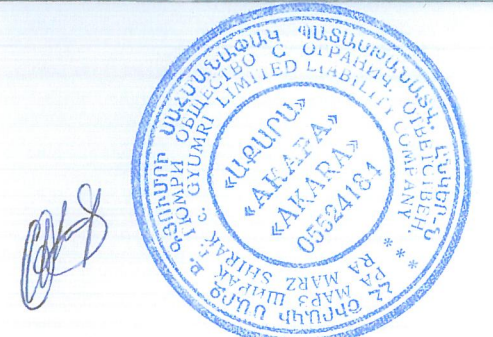 ՀՀ ՇԻՐԱԿԻ ՄԱՐԶ Ք. ԳՅՈՒՄՐԻ ՍԱՀՄԱՆԱՓԱԿ ՊԱՏԱՍԽԱՆԱՏՎ. ԸՆԿԵՐ.
РА МАРЗ ШИРАК Г. ГЮМРИ ОБЩЕСТВО С ОГРАНИЧ. ОТВЕТСТВЕН.
RA MARZ SHIRAK c. GYUMRI LIMITED LIABILITY COMPANY
* * *
«ԱՔԱՐԱ»
«АКАРА»
«AKARA»
05524184